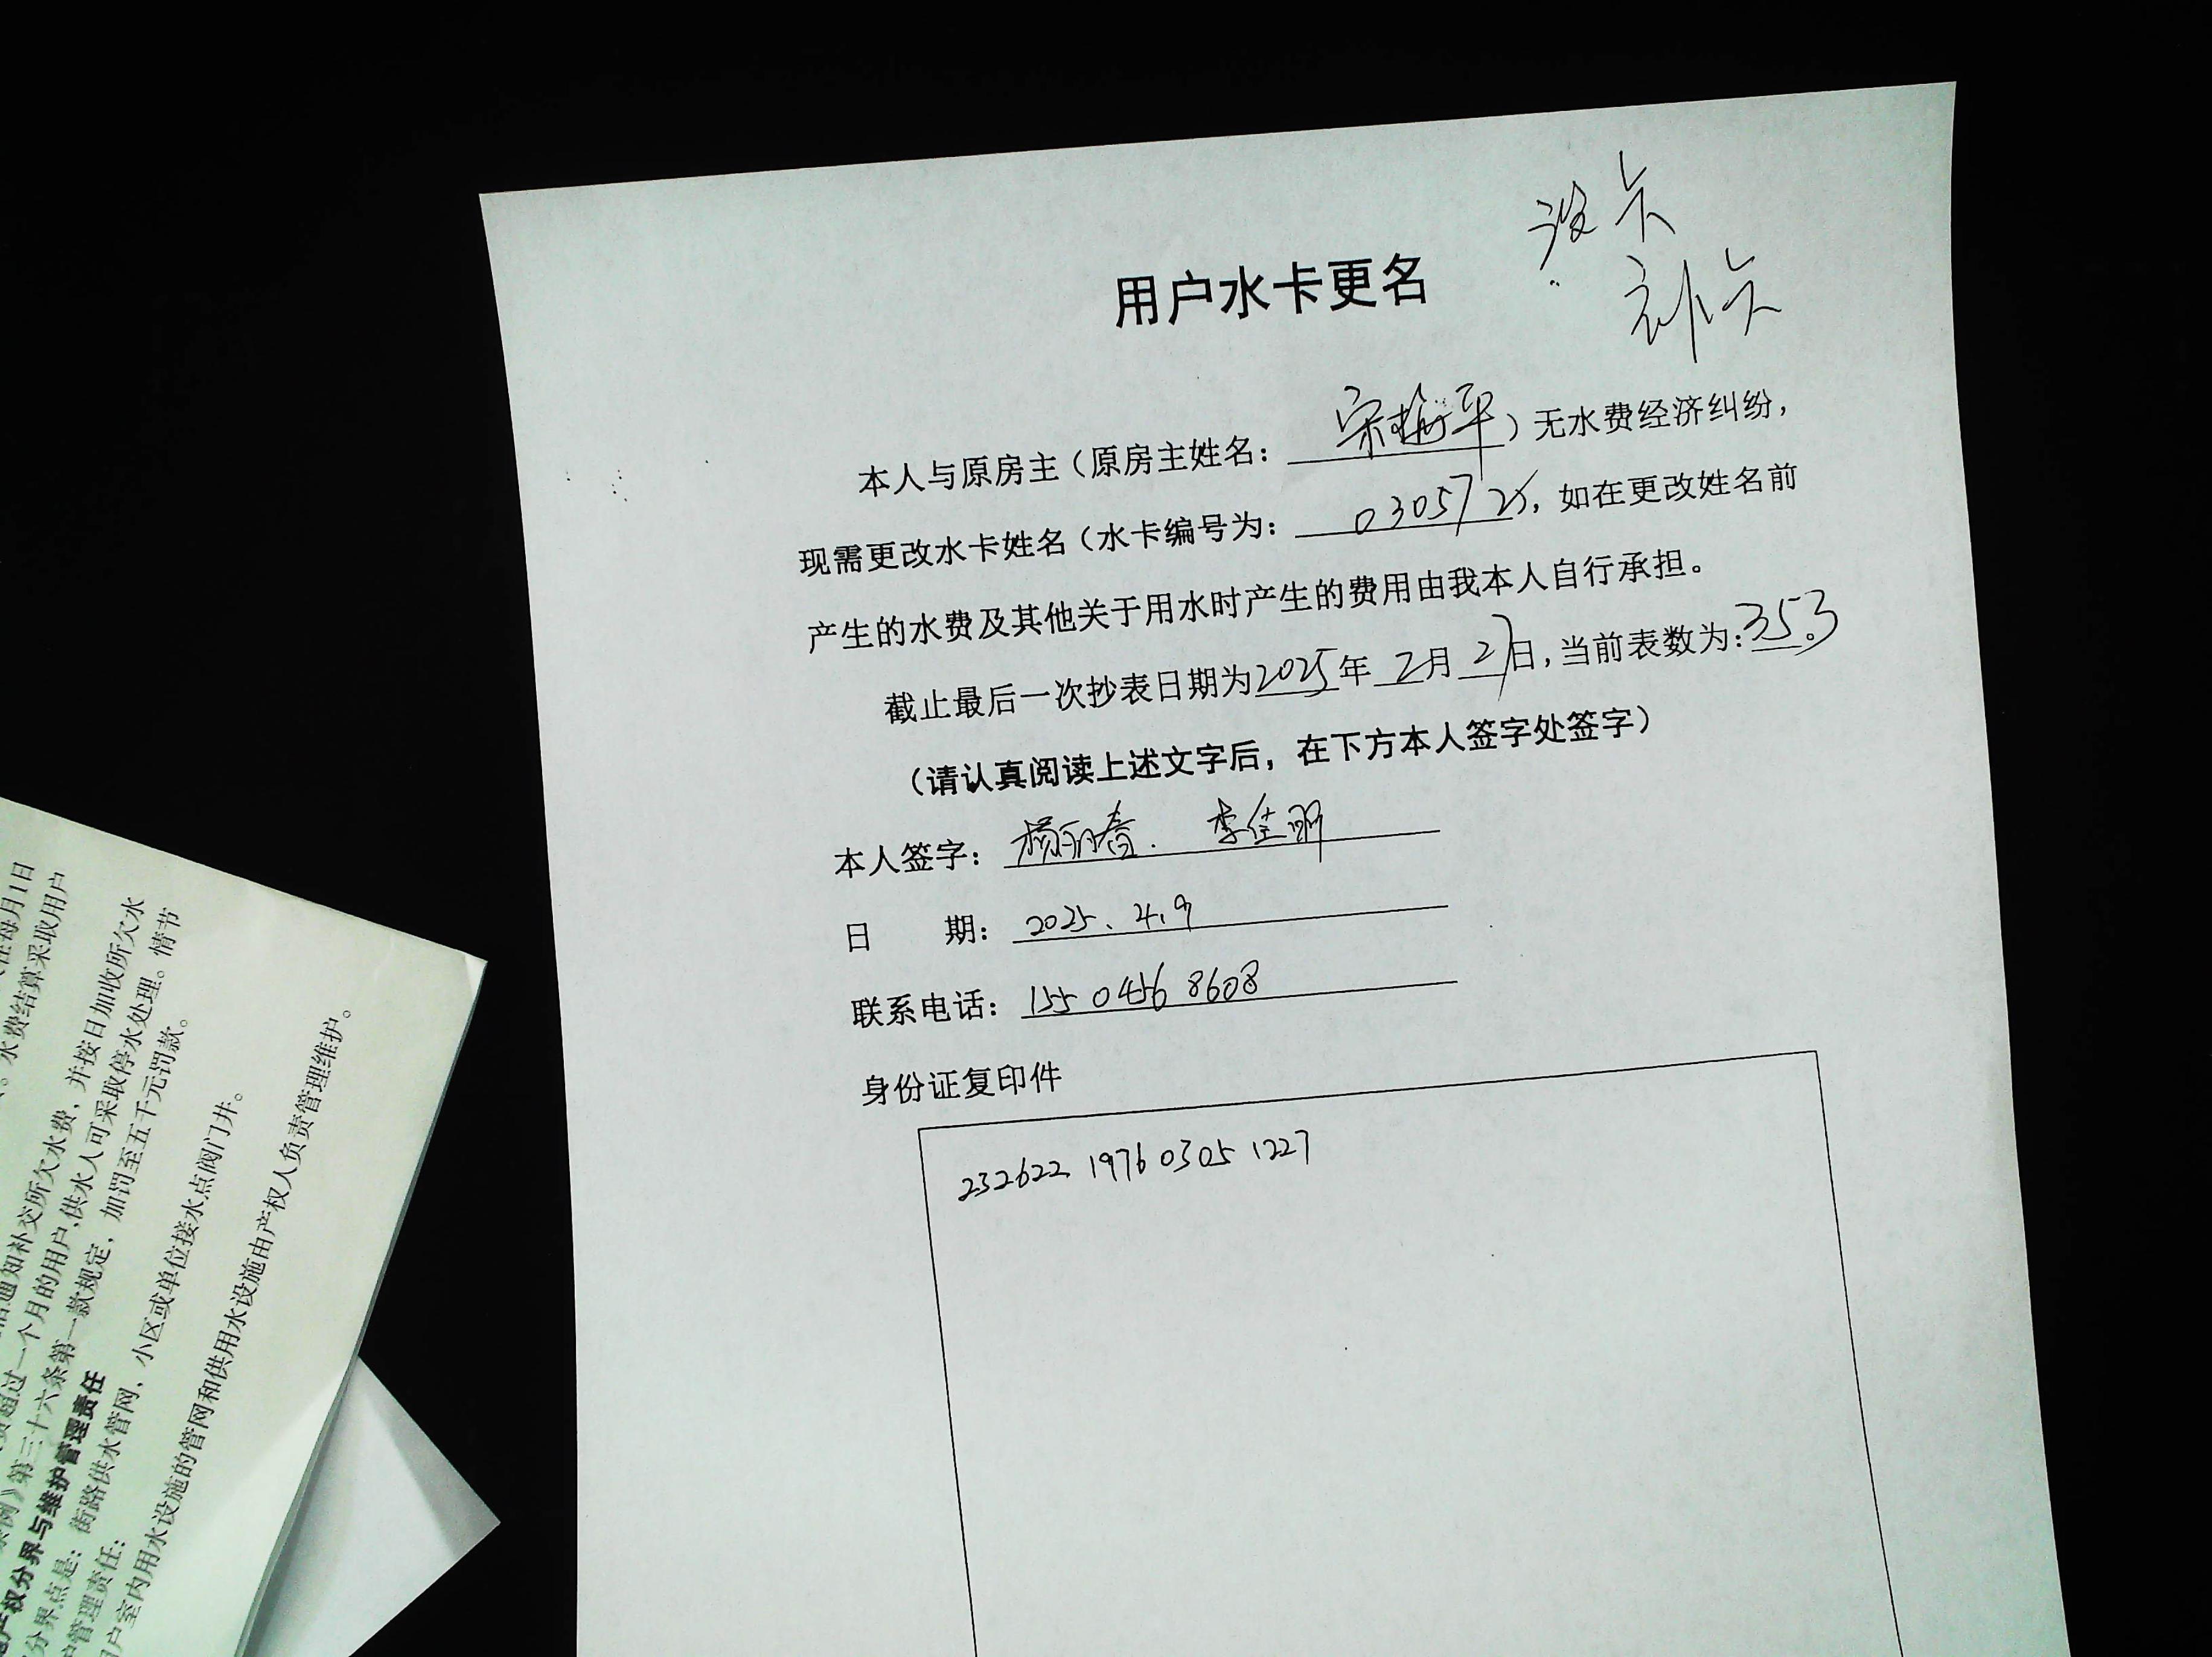 没卡
补卡
用户水卡更名
本人与原房主（原房主姓名：宋梅平）无水费经济纠纷，
现需更改水卡姓名（水卡编号为：0305725，如在更改姓名前
产生的水费及其他关于用水时产生的费用由我本人自行承担。
截止最后一次抄表日期为2025年2月27日，当前表数为：353
（请认真阅读上述文字后，在下方本人签字处签字）
本人签字：杨丽春. 李佳明
日 期：2025.4.9
联系电话：155 0456 8608
身份证复印件
232622 1976 0305 1227
在每月1日
。水费结算采取用户
通知补交所欠水费，并按日加收所欠水
超过一个月的用户,供水人可采取停水处理。情节
条例》第三十六条第一款规定，加罚至五千元罚款。
产权分界与维护管理责任
分界点是：街路供水管网，小区或单位接水点阀门井。
护管理责任：
用户室内用水设施的管网和供用水设施由产权人负责管理维护。